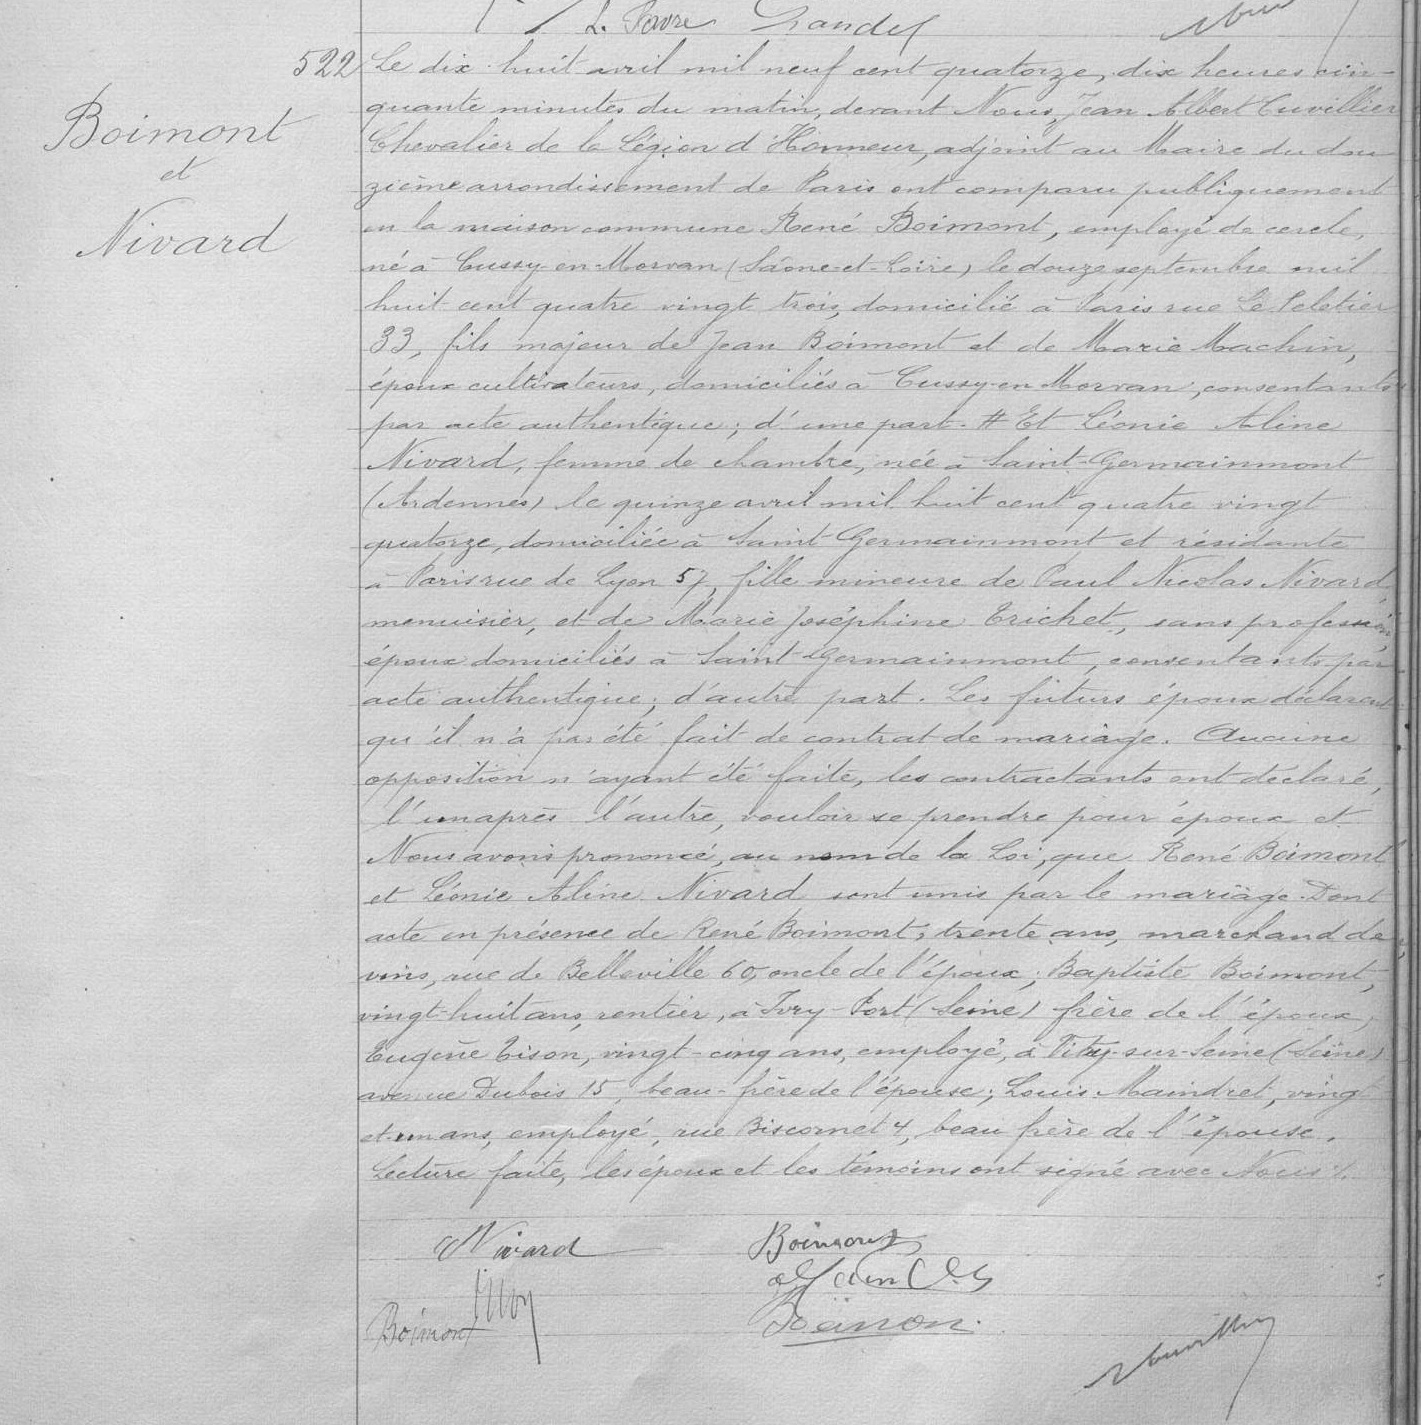 L. Favre Grandel
522
Boimont
et
Nivard
Le dix-huit avril mil neuf cent quatorze, dix heures cin-
quante minutes du matin, devant Nous, Jean Albert Cuvillier
Chevalier de la Légion d'Honneur, adjoint au Maire du dou
zième arrondissement de Paris ont comparu publiquement
en la maison commune René Boimont, employé de cercle,
né à Cussy-en-Morvan (Saône-et-Loire) le douze septembre mil
huit cent quatre vingt trois, domicilié à Paris rue Le Peletier
33, fils majeur de Jean Boimont et de Marie Machin,
époux cultivateurs, domiciliés à Cussy-en-Morvan, consentants
par acte authentique; d'une part. # Et Léonie Aline
Nivard, femme de chambre, née à Saint-Germainmont
(Ardennes) le quinze avril mil huit cent quatre vingt
quatorze, domiciliée à Saint-Germainmont et résidante
à Paris rue de Lyon 57, fille mineure de Paul Nicolas Nivard,
menuisier, et de Marie Joséphine Trichet, sans profession,
époux domiciliés à Saint-Germainmont, consentants par
acte authentique; d'autre part. Les futurs époux déclarent
qu'il n'a pas été fait de contrat de mariage. Aucune
opposition n'ayant été faite, les contractants ont déclaré,
l'un après l'autre, vouloir se prendre pour époux et
Nous avons prononcé, au nom de la Loi, que René Boimont
et Léonie Aline Nivard sont unis par le mariage. Dont
acte en présence de René Boimont, trente ans, marchand de
vins, rue de Belleville 60, oncle de l'époux; Baptiste Boimont,
vingt-huit ans, rentier, à Ivry-Port (Seine) frère de l'époux,
Eugène Tison, vingt-cinq ans, employé, à Vitry-sur-Seine (Seine)
avenue Dubois 15, beau-frère de l'épouse; Louis Maindret, vingt
et-un ans, employé, rue Biscornet 4, beau frère de l'épouse.
Lecture faite, les époux et les témoins ont signé avec Nous.
Nivard Boimont
Boimont